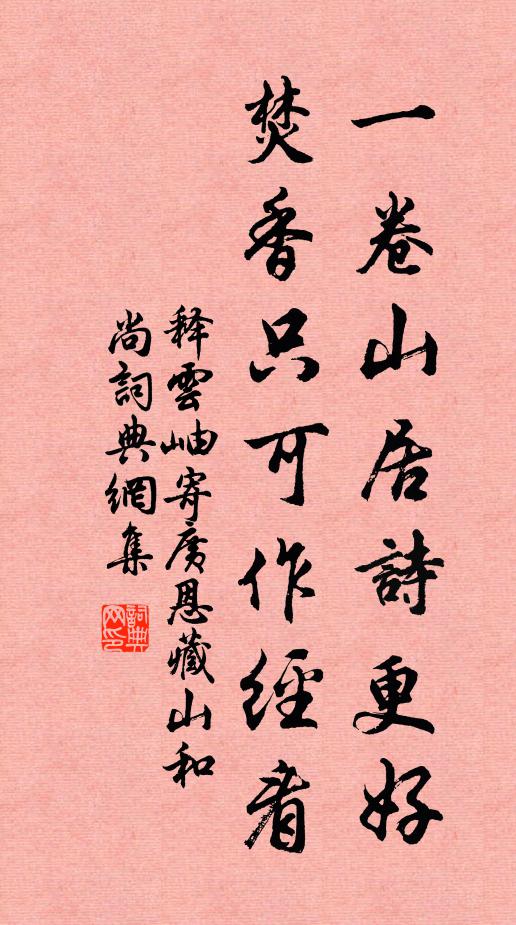 一卷山居詩更好
焚香只可作經看
释雲岫寄广恩藏山和
尚詞典網集
詞典
网印